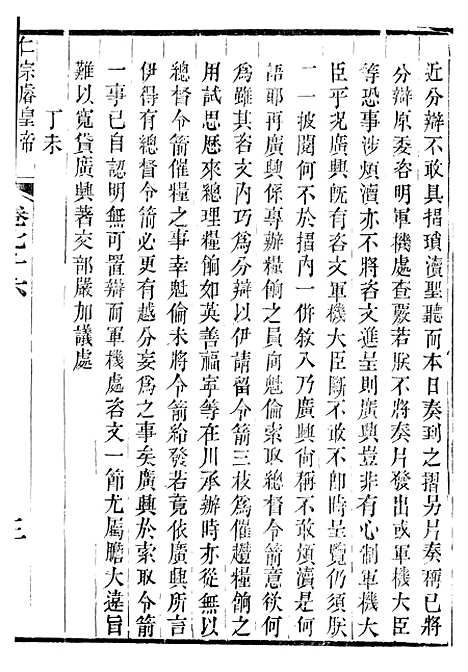 近分辯不敢具摺瑣瀆聖聽而本日奏到之摺另片奏稱已將
分辯原委咨明軍機處查覈若朕不將奏片發出或軍機大臣
等恐事涉煩瀆亦不將咨文進呈則廣興豈非有心制軍機大
臣乎况廣興旣有咨文軍機大臣斷不敢不卽時呈覽仍須朕
一一披閱何不於摺內一併敘入乃廣興尚稱不敢煩瀆是何
語耶再廣興係專辦糧餉之員向魁倫索取總督令箭意欲何
為雖其咨文內巧為分辯以伊請留令箭三枝為催趲糧餉之
用試思歷來總理糧餉如英善福寧等在川承辦時亦從無以
總督令箭催糧之事幸魁倫未將令箭給發若竟依廣興所言
伊得有總督令箭必更有越分妄為之事矣廣興於索取令箭
一事已自認明無可置辯而軍機處咨文一節尤屬膽大違旨
難以寬貸廣興著交部嚴加議處
丁未
仁宗睿皇帝
卷七十六
三